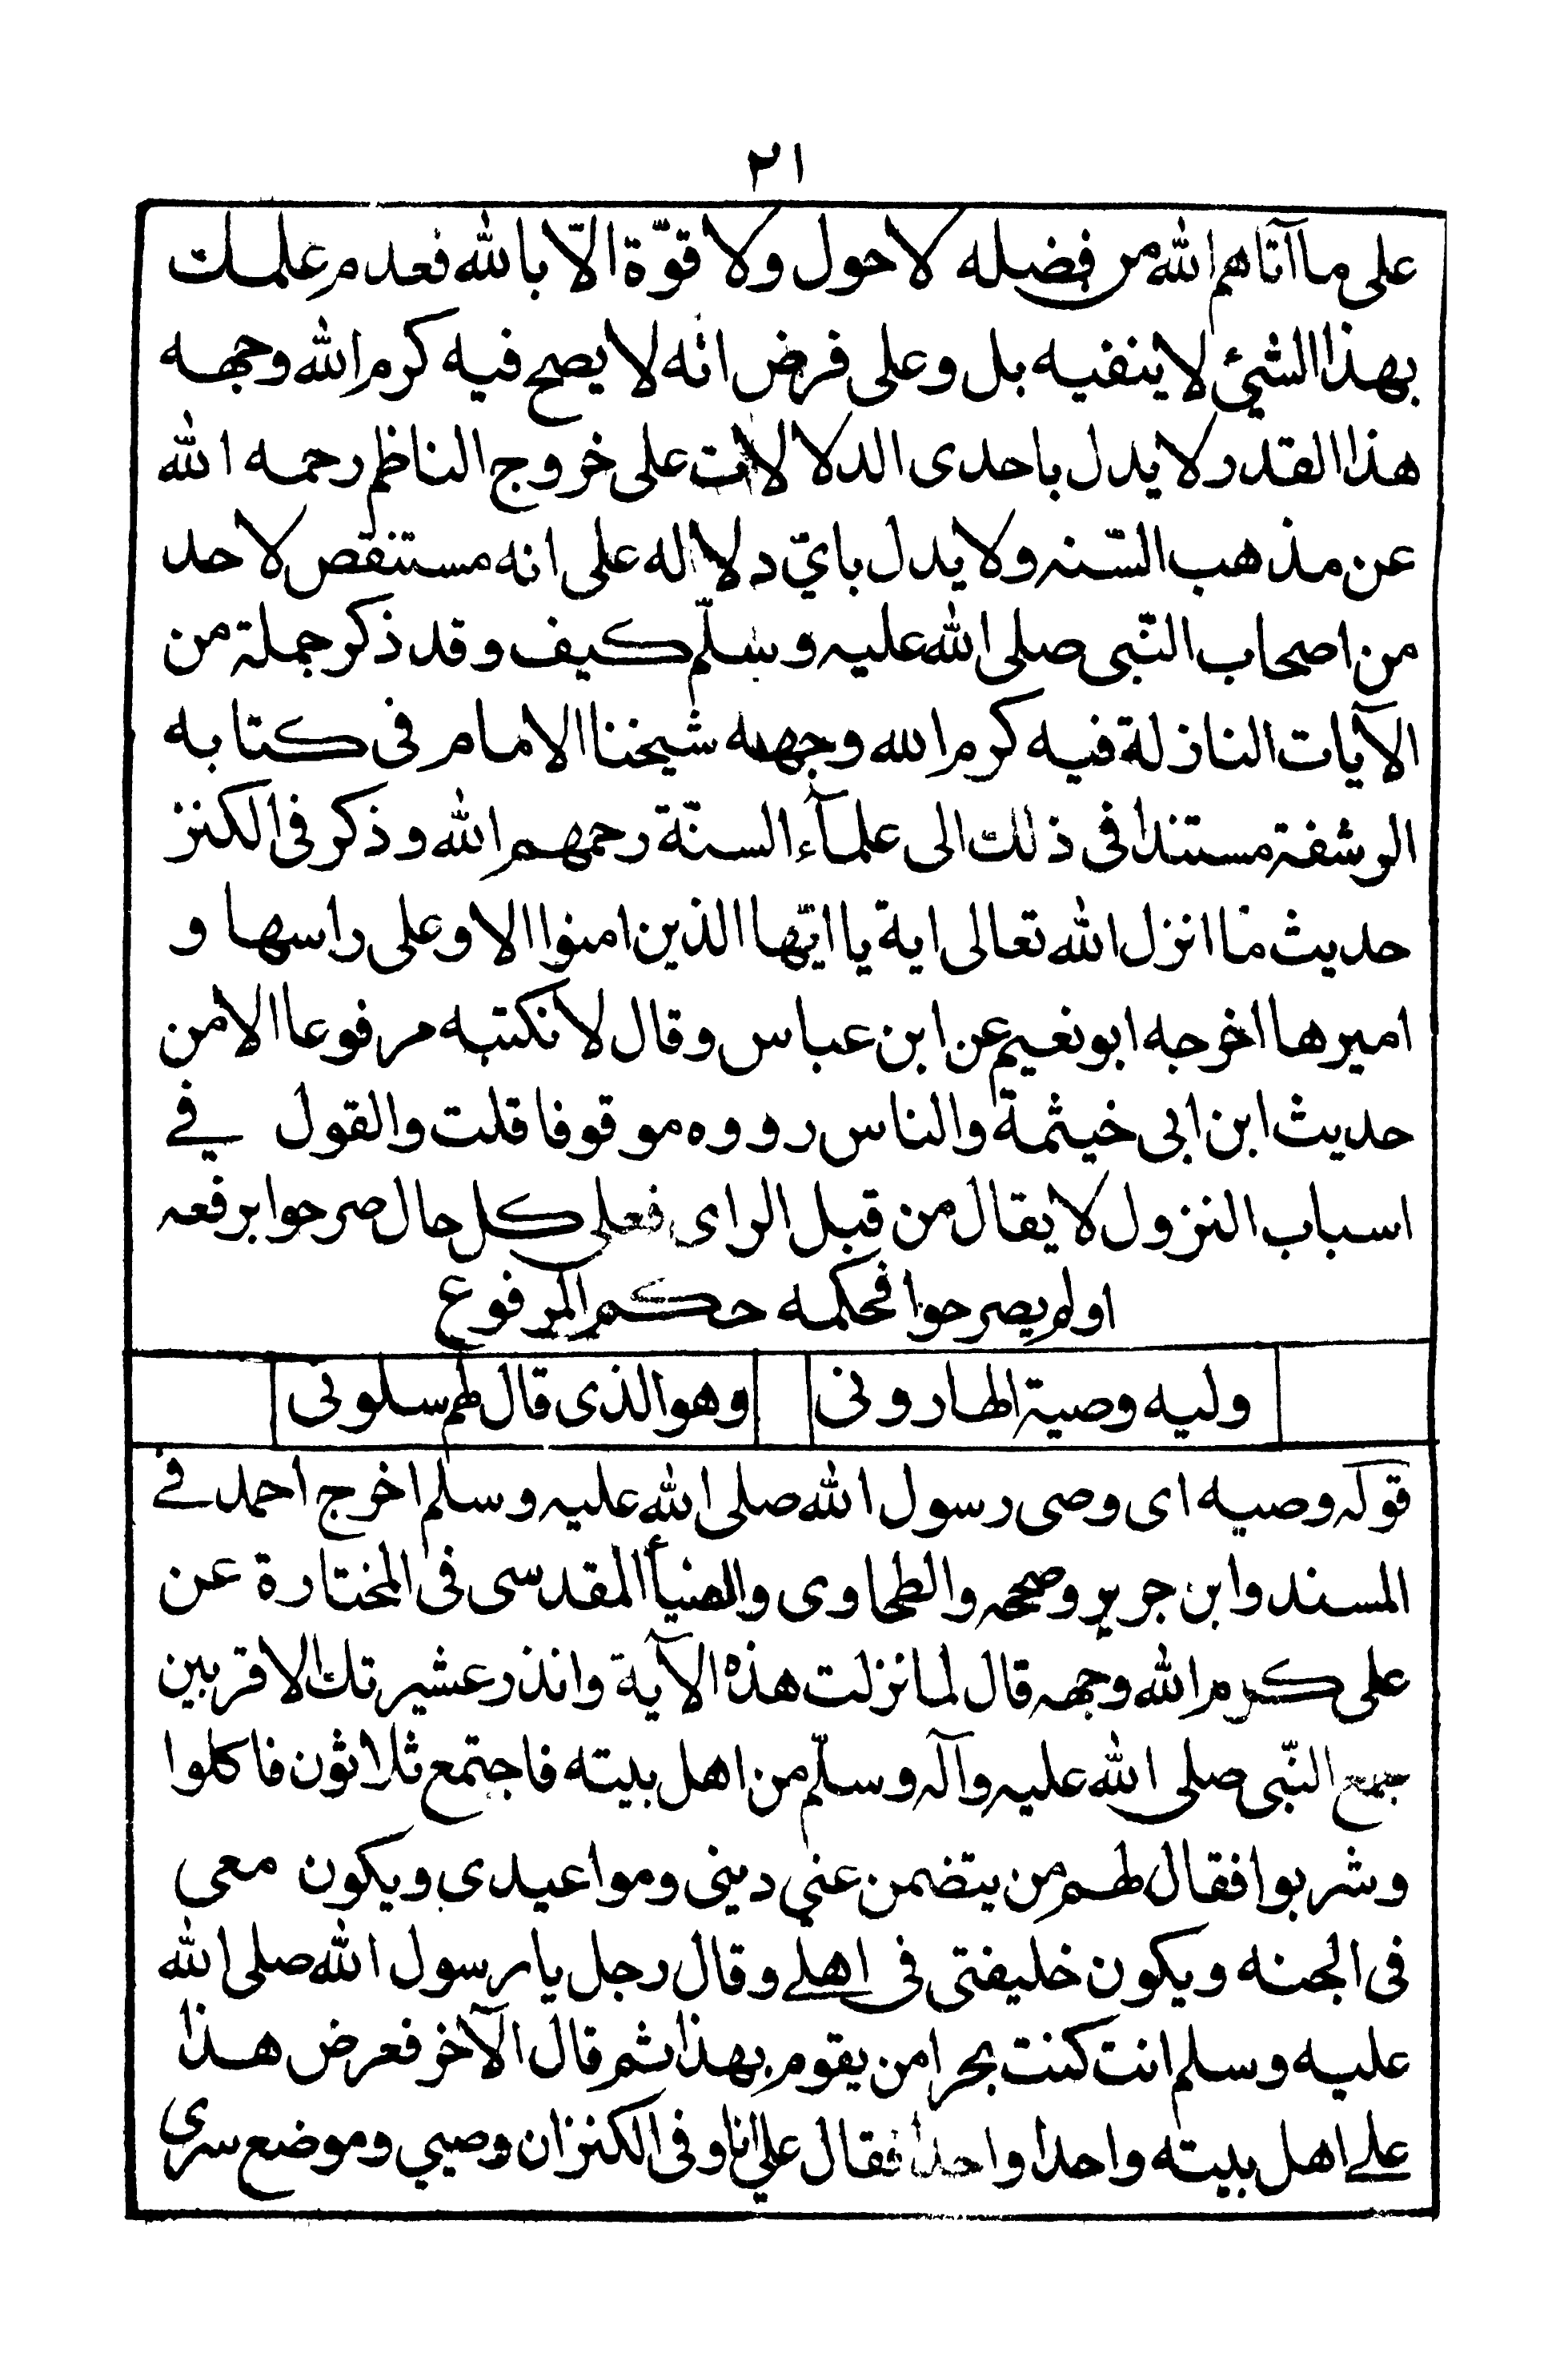 ٢١
على ما آتاهم الله من فضله لا حول ولا قوّة الّا بالله فعدم علمك
بهذا الشيئ لا ينفيه بل وعلى فرض انه لا يصح فيه كرم الله وجهه
هذا القدر لا يدل باحدى الدلالات على خروج الناظم رحمه الله
عن مذهب السّنه ولا يدل بايّ دلاله على انه مستنقص لاحد
من اصحاب النّبى صلى الله عليه وسلّم كيف وقد ذكر جملة من
الآيات النازلة فيه كرم الله وجهه شيخنا الامام فى كتابه
الرشفة مستندا فى ذلك الى علمآء السنّة رحمهم الله وذكر فى الكنز
حديث ما انزل الله تعالى اية يا ايّها الذين امنوا الا وعلى راسها و
اميرها اخرجه ابو نعيم عن ابن عباس وقال لا نكتبه مرفوعا الا من
حديث ابن ابى خيثمة والناس رووه موقوفا قلت والقول في
اسباب النزول لا يقال من قبل الراى فعلى كل حال صرحوا برفعه
اولم يصرحوا فحكمه حكم المرفوع
وليه وصية الهارونى وهو الذى قال لهم سلونى
قوله وصيه اى وصى رسول الله صلى الله عليه وسلم اخرج احمد في
المسند وابن جرير وصححه والطحاوى والضيأ المقدسى فى المختارة عن
على كرم الله وجهه قال لما نزلت هذه الآية وانذر عشيرتك الاقربين
جمع النّبى صلى الله عليه وآله وسلّم من اهل بيته فاجتمع ثلاثون فاكلوا
وشربوا فقال لهم من يتضمن عني دينى ومواعيدي ويكون معى
فى الجنه ويكون خليفتى فى اهلے وقال رجل يا رسول الله صلى الله
عليه وسلم انت كنت بحرا من يقوم بهذا ثم قال الآخر فعرض هذا
علے اهل بيته واحدا واحدا فقال علي انا وفى الكنز ان وصيي وموضع سري